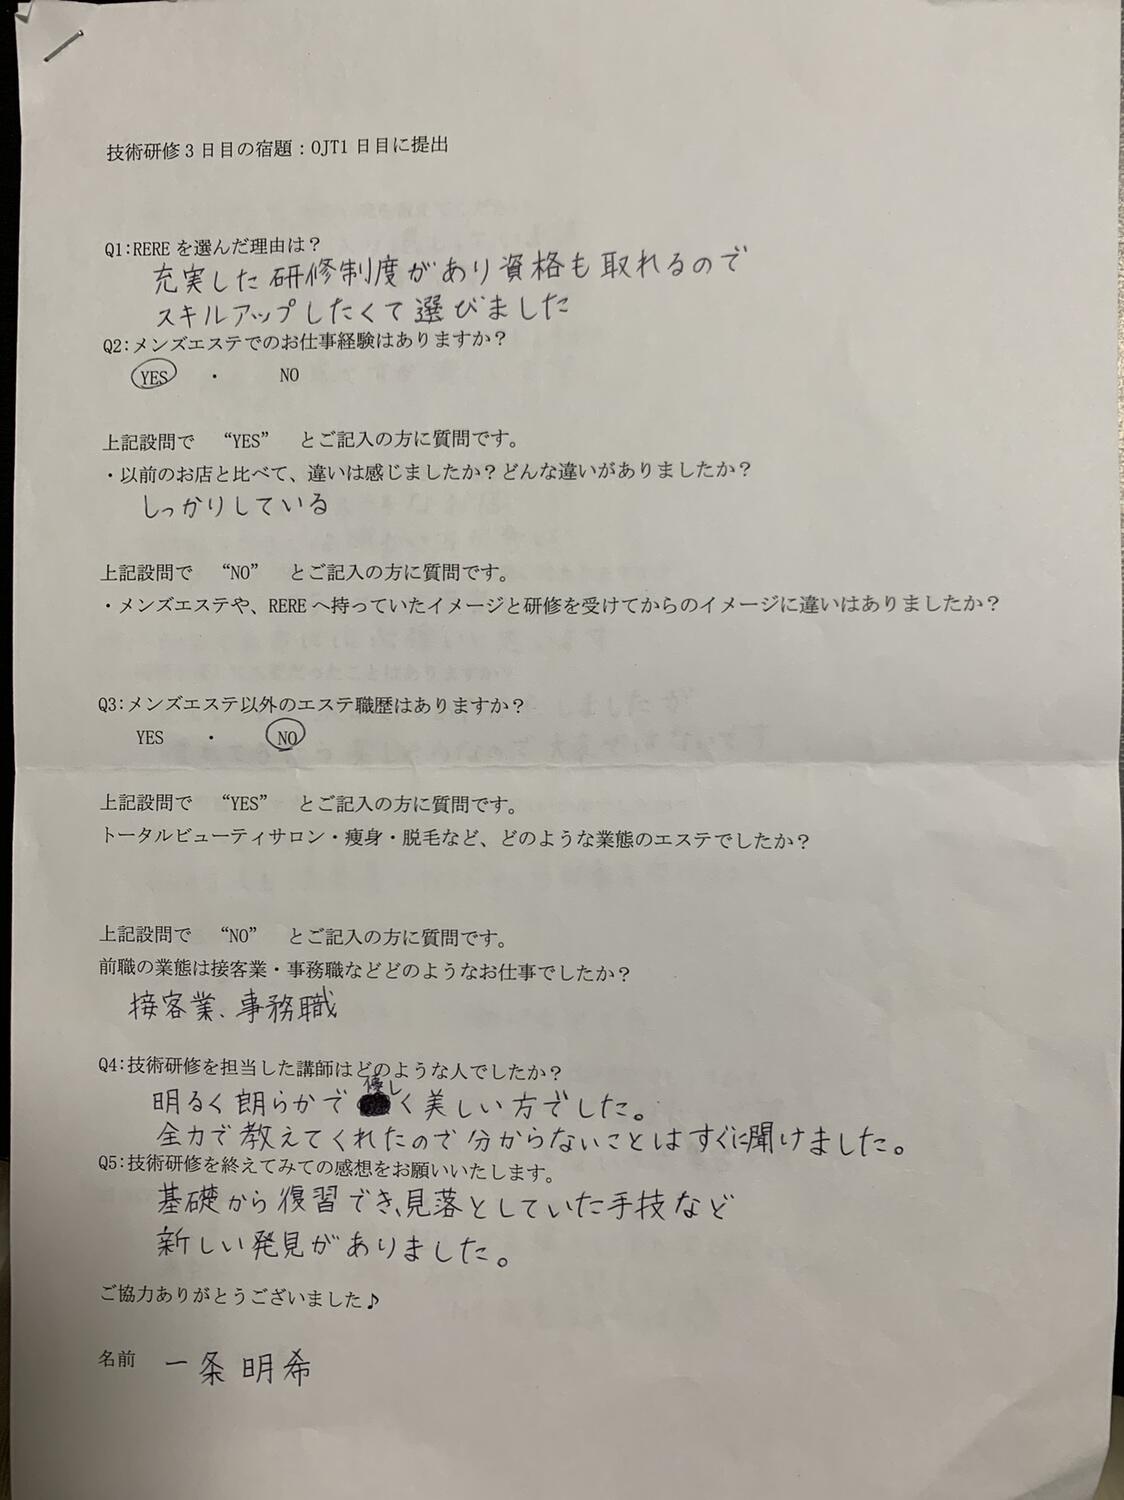 技術研修3日目の宿題：OJT1日目に提出
Q1:REREを選んだ理由は？
充実した研修制度があり資格も取れるので
スキルアップしたくて選びました
Q2:メンズエステでのお仕事経験はありますか？
YES ・ NO
上記設問で “YES” とご記入の方に質問です。
・以前のお店と比べて、違いは感じましたか？どんな違いがありましたか？
しっかりしている
上記設問で “NO” とご記入の方に質問です。
・メンズエステや、REREへ持っていたイメージと研修を受けてからのイメージに違いはありましたか？
Q3:メンズエステ以外のエステ職歴はありますか？
YES ・ NO
上記設問で “YES” とご記入の方に質問です。
トータルビューティサロン・痩身・脱毛など、どのような業態のエステでしたか？
上記設問で “NO” とご記入の方に質問です。
前職の業態は接客業・事務職などどのようなお仕事でしたか？
接客業、事務職
Q4:技術研修を担当した講師はどのような人でしたか？
明るく朗らかで優しく美しい方でした。
全力で教えてくれたので分からないことはすぐに聞けました。
Q5:技術研修を終えてみての感想をお願いいたします。
基礎から復習でき、見落としていた手技など
新しい発見がありました。
ご協力ありがとうございました♪
名前 一条 明希